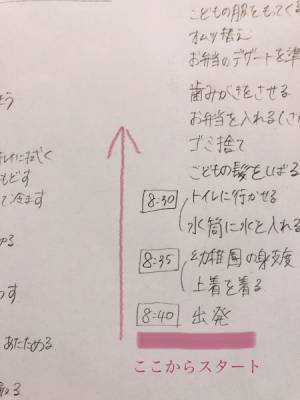 こどもの服をもってくる
オムツ替え
お弁当のデザートを準
歯みがきをさせる
お弁当を入れる
ゴミ捨て
こどもの髪をしばる
8:30 トイレに行かせる
水筒に水を入れる
8:35 幼稚園の身支度
上着を着る
8:40 出発
ここからスタート
よう
に拭く
もどす
て冷ます
める
す
あたためる
える